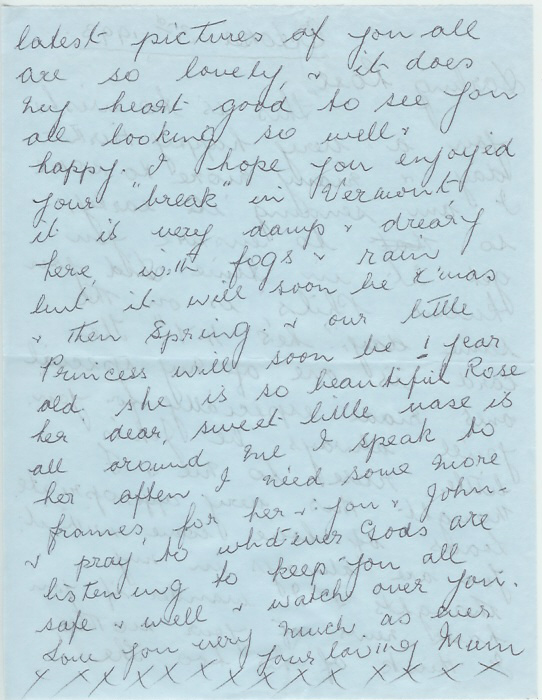 latest pictures of you all
are so lovely, & it does
my heart good to see you
all looking so well &
happy. I hope you enjoyed
your "break" in Vermont
it is very damp & dreary
here, with fogs & rain
but it will soon be X'mas
& then Spring. & our little
Princess will soon be 1 year
old she is so beautiful Rose
her dear, sweet little is
all around me I speak to
her often I need some more
frames, for her & you & John-
& pray to whatever Gods are
listening to keep you all
safe & well & watch over you.
Love you very much as ever
your loving Mum
X X X X X X X X X X X X